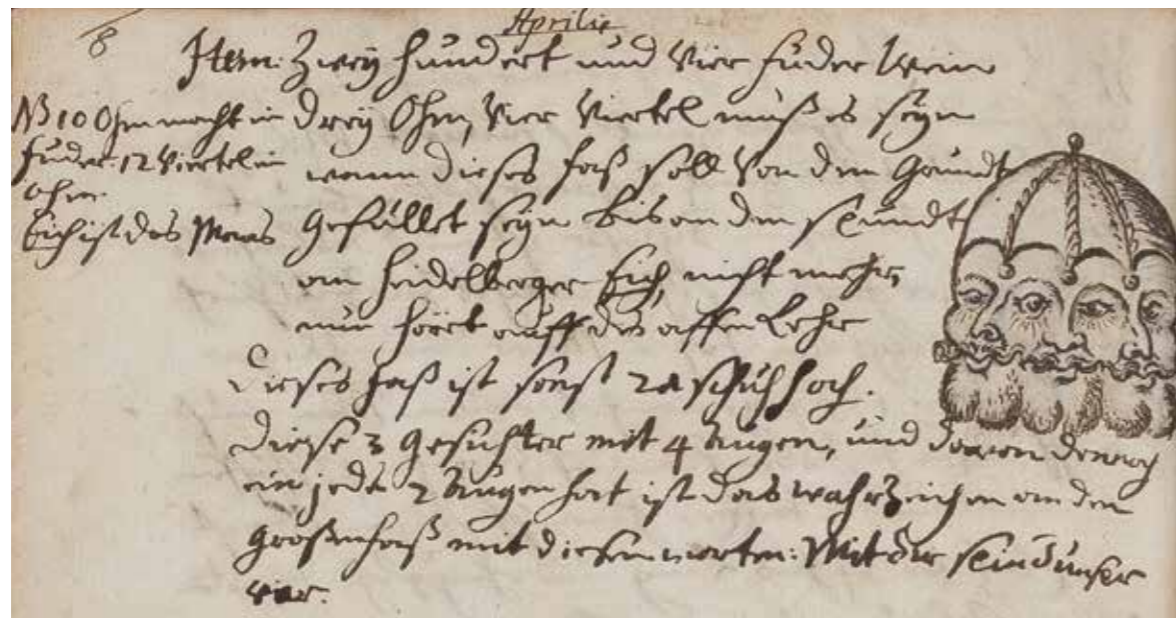 Aprilis
8
Item: Zweÿ hundert und Vier fuder Wein
dreÿ Ohm, Vier Viertel muß es seÿn
wann dieses faß soll Von dem Grundt
gefüllet seÿn bis an den spundt
am heidelberger Eich, nicht mehr,
nun höret auff des affen Lehr
dieses faß ist sonst 24 schuh hoch.
diese 3 gesichter mit 4 Augen, und davon dennoch
ein jedes 2 Augen hat ist das wahrzeichen an dem
großen faß mit diesen worten: Mit dir seind unser
vier.
NB 10 Ohm macht ein
fuder. 12 Viertel ein
ohm.
Eich ist das Maas